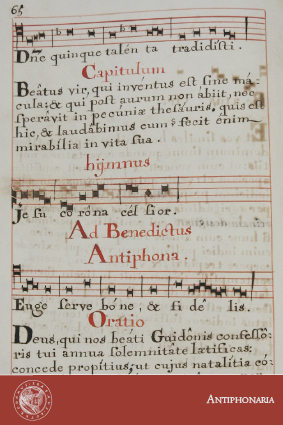 65
Dñe quinque talén ta tradidísti.
Capitulum
Beâtus vir, qui invéntus est sine má=
cula; & qui post aurum non abiit, nec
sperávit in pecuniæ thesáuris, quis est
hic, & laudábimus eum? fecit énim
mirabília in vita sua.
hÿmnus
Je su coróna cél sior.
Ad Benedictus
Antiphona.
Euge serve bóne, & fi dê lis.
Oratio
Deus, qui nos beáti Guidónis confessó=
ris tui annua solemnitáte lætíficas:
concede propítius, ut cujus natalítia có=
ANTIPHONARIA